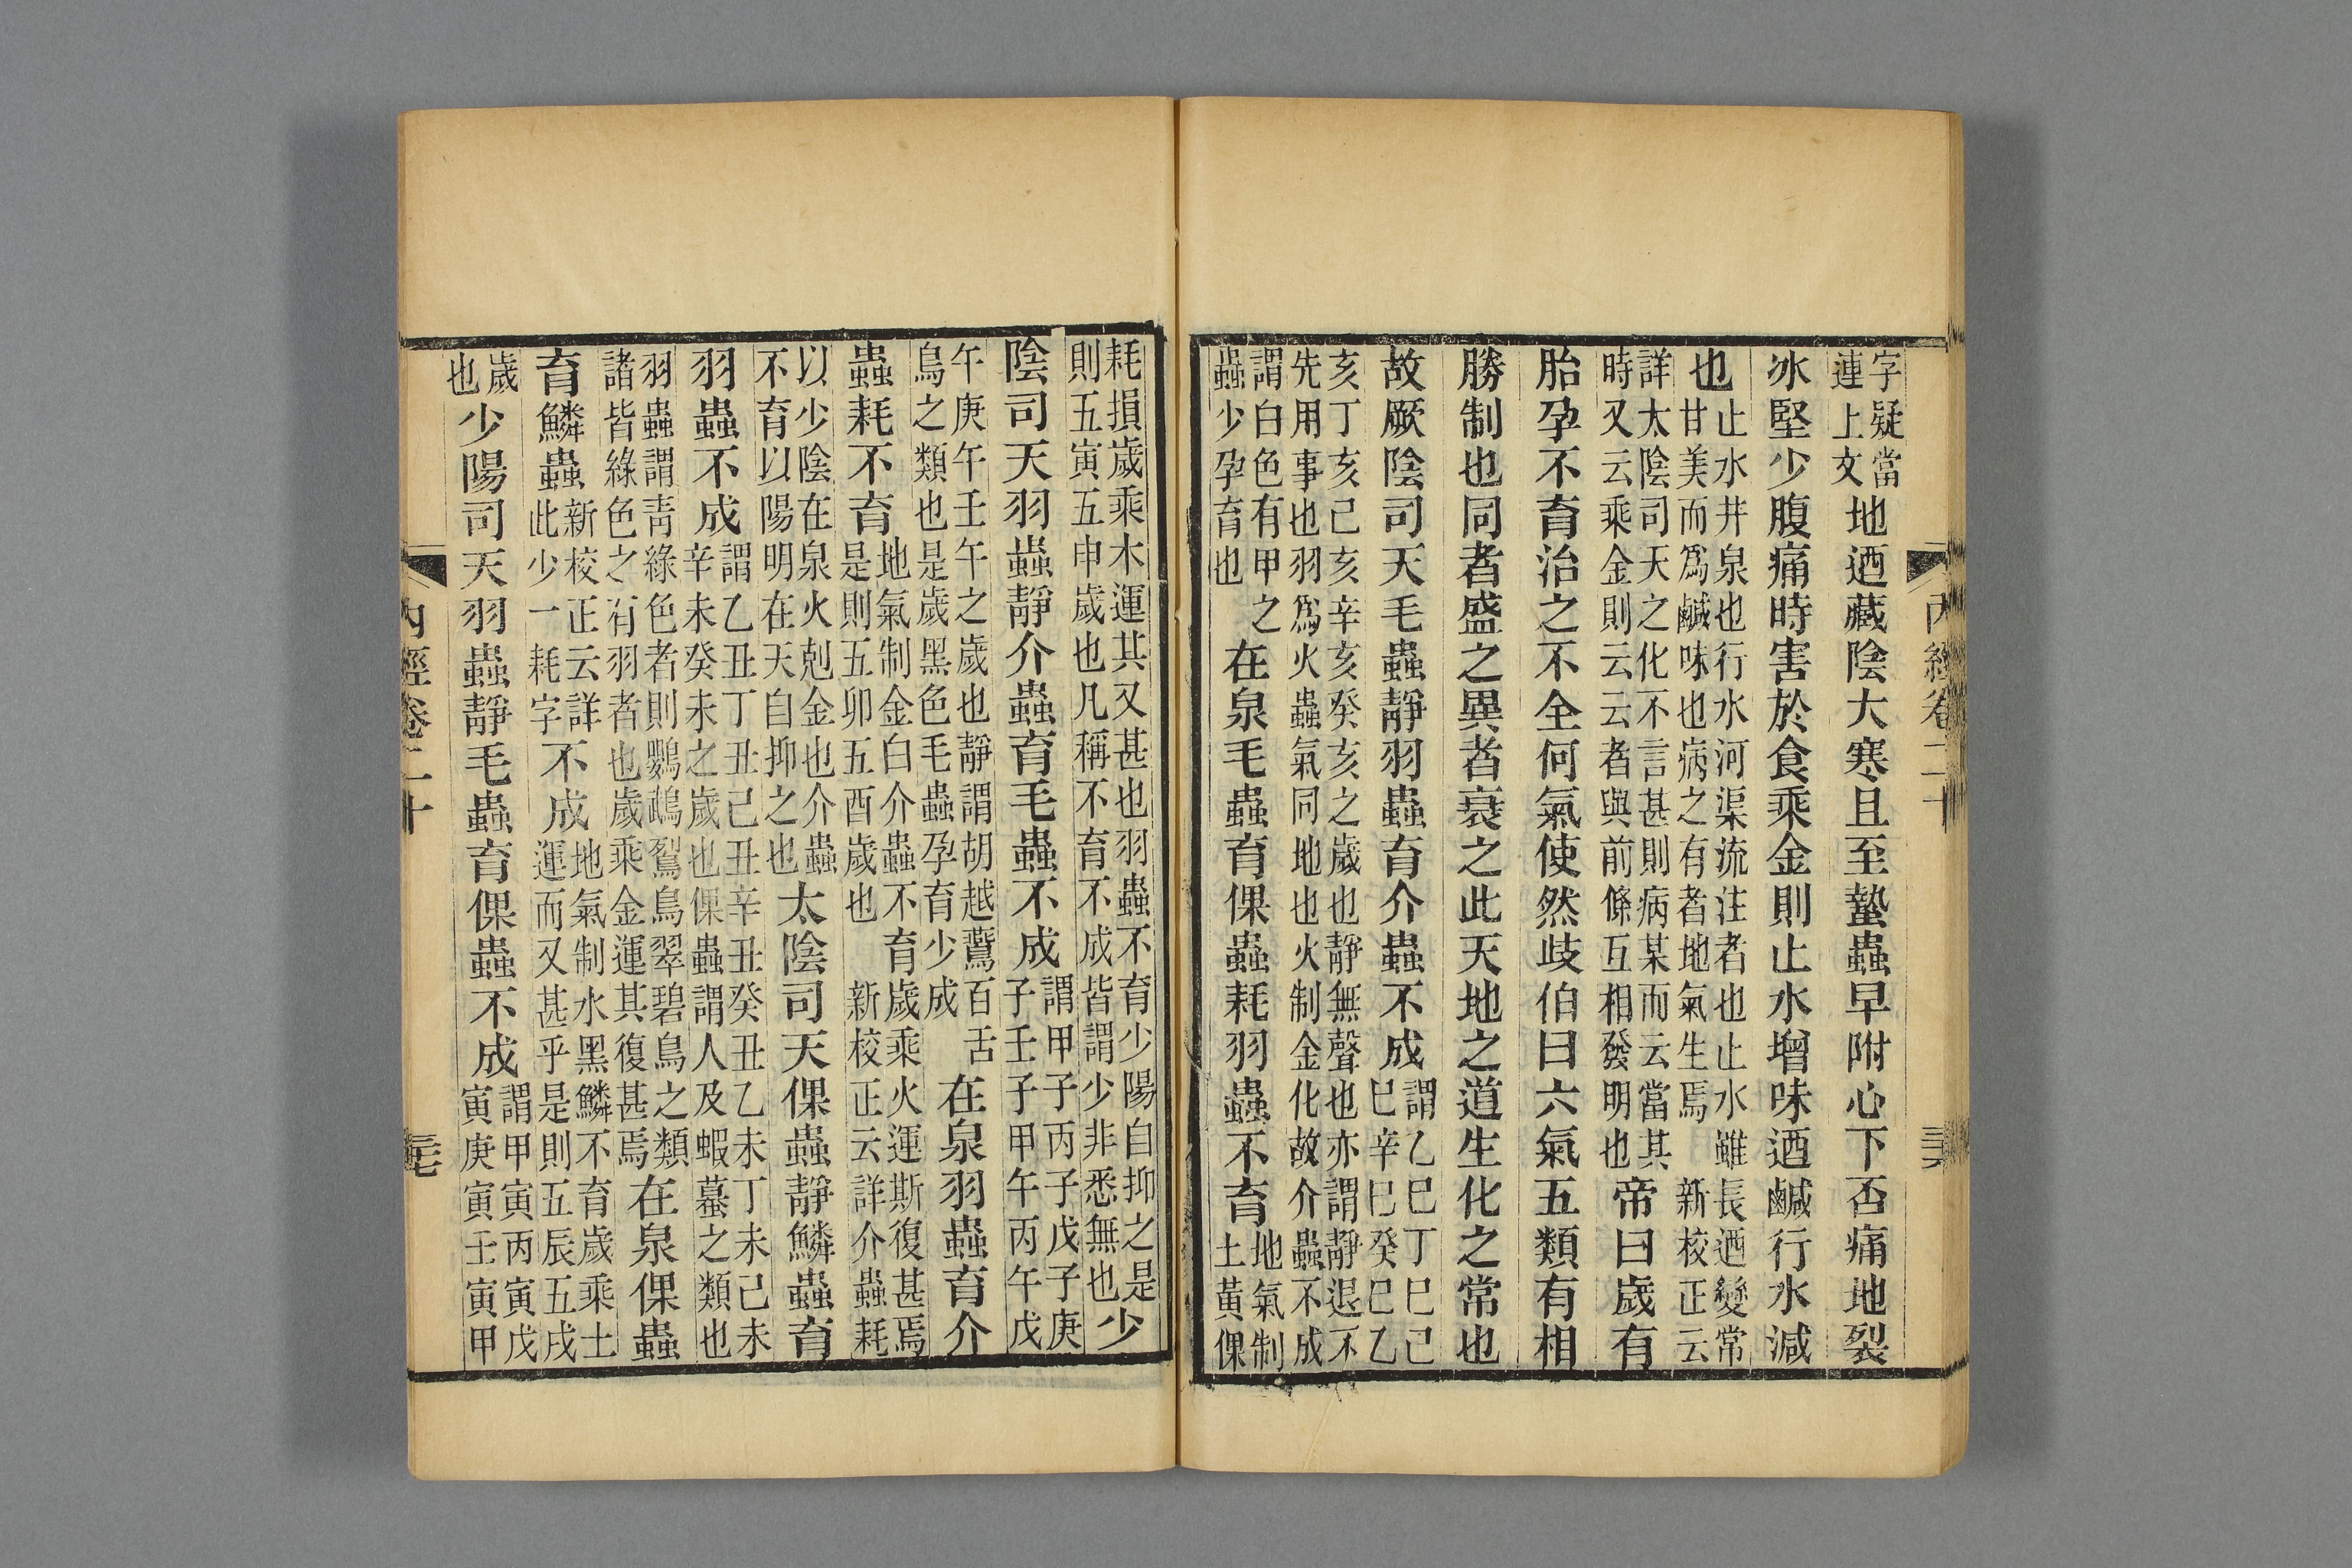 內經卷二十
字疑當連上文地迺藏陰大寒且至蟄蟲早附心下否痛地裂
冰堅少腹痛時害於食乘金則止水增味迺鹹行水減
也止水井泉也行水河渠流注者也止水雖長迺變常甘美而爲鹹味也病之有者地氣生焉 新校正云
詳太陰司天之化不言甚則病某而云當其時又云乘金則云云者與前條互相發明也帝曰歲有
胎孕不育治之不全何氣使然歧伯曰六氣五類有相
勝制也同者盛之異者衰之此天地之道生化之常也
故厥陰司天毛蟲靜羽蟲育介蟲不成謂乙巳丁巳己巳辛巳癸巳乙
亥丁亥己亥辛亥癸亥之歲也靜無聲也亦謂靜退不先用事也羽爲火蟲氣同地也火制金化故介蟲不成
謂白色有甲之蟲少孕育也在泉毛蟲育倮蟲耗羽蟲不育地氣制土黃倮
耗損歲乘木運其又甚也羽蟲不育少陽自抑之是則五寅五申歲也凡稱不育不成皆謂少非悉無也少
陰司天羽蟲靜介蟲育毛蟲不成謂甲子丙子戊子庚子壬子甲午丙午戊
午庚午壬午之歲也靜謂胡越鷰百舌鳥之類也是歲黑色毛蟲孕育少成在泉羽蟲育介
蟲耗不育地氣制金白介蟲不育歲乘火運斯復甚焉是則五卯五酉歲也 新校正云詳介蟲耗
以少陰在泉火剋金也介蟲不育以陽明在天自抑之也太陰司天倮蟲靜鱗蟲育
羽蟲不成謂乙丑丁丑己丑辛丑癸丑乙未丁未己未辛未癸未之歲也倮蟲謂人及蝦蟇之類也
羽蟲謂靑綠色者則鸚鵡鴷鳥翠碧鳥之類諸皆綠色之有羽者也歲乘金運其復甚焉在泉倮蟲
育鱗蟲新校正云詳此少一耗字不成地氣制水黑鱗不育歲乘土運而又甚乎是則五辰五戌
歲也少陽司天羽蟲靜毛蟲育倮蟲不成謂甲寅丙寅戊寅庚寅壬寅甲
內經卷二十